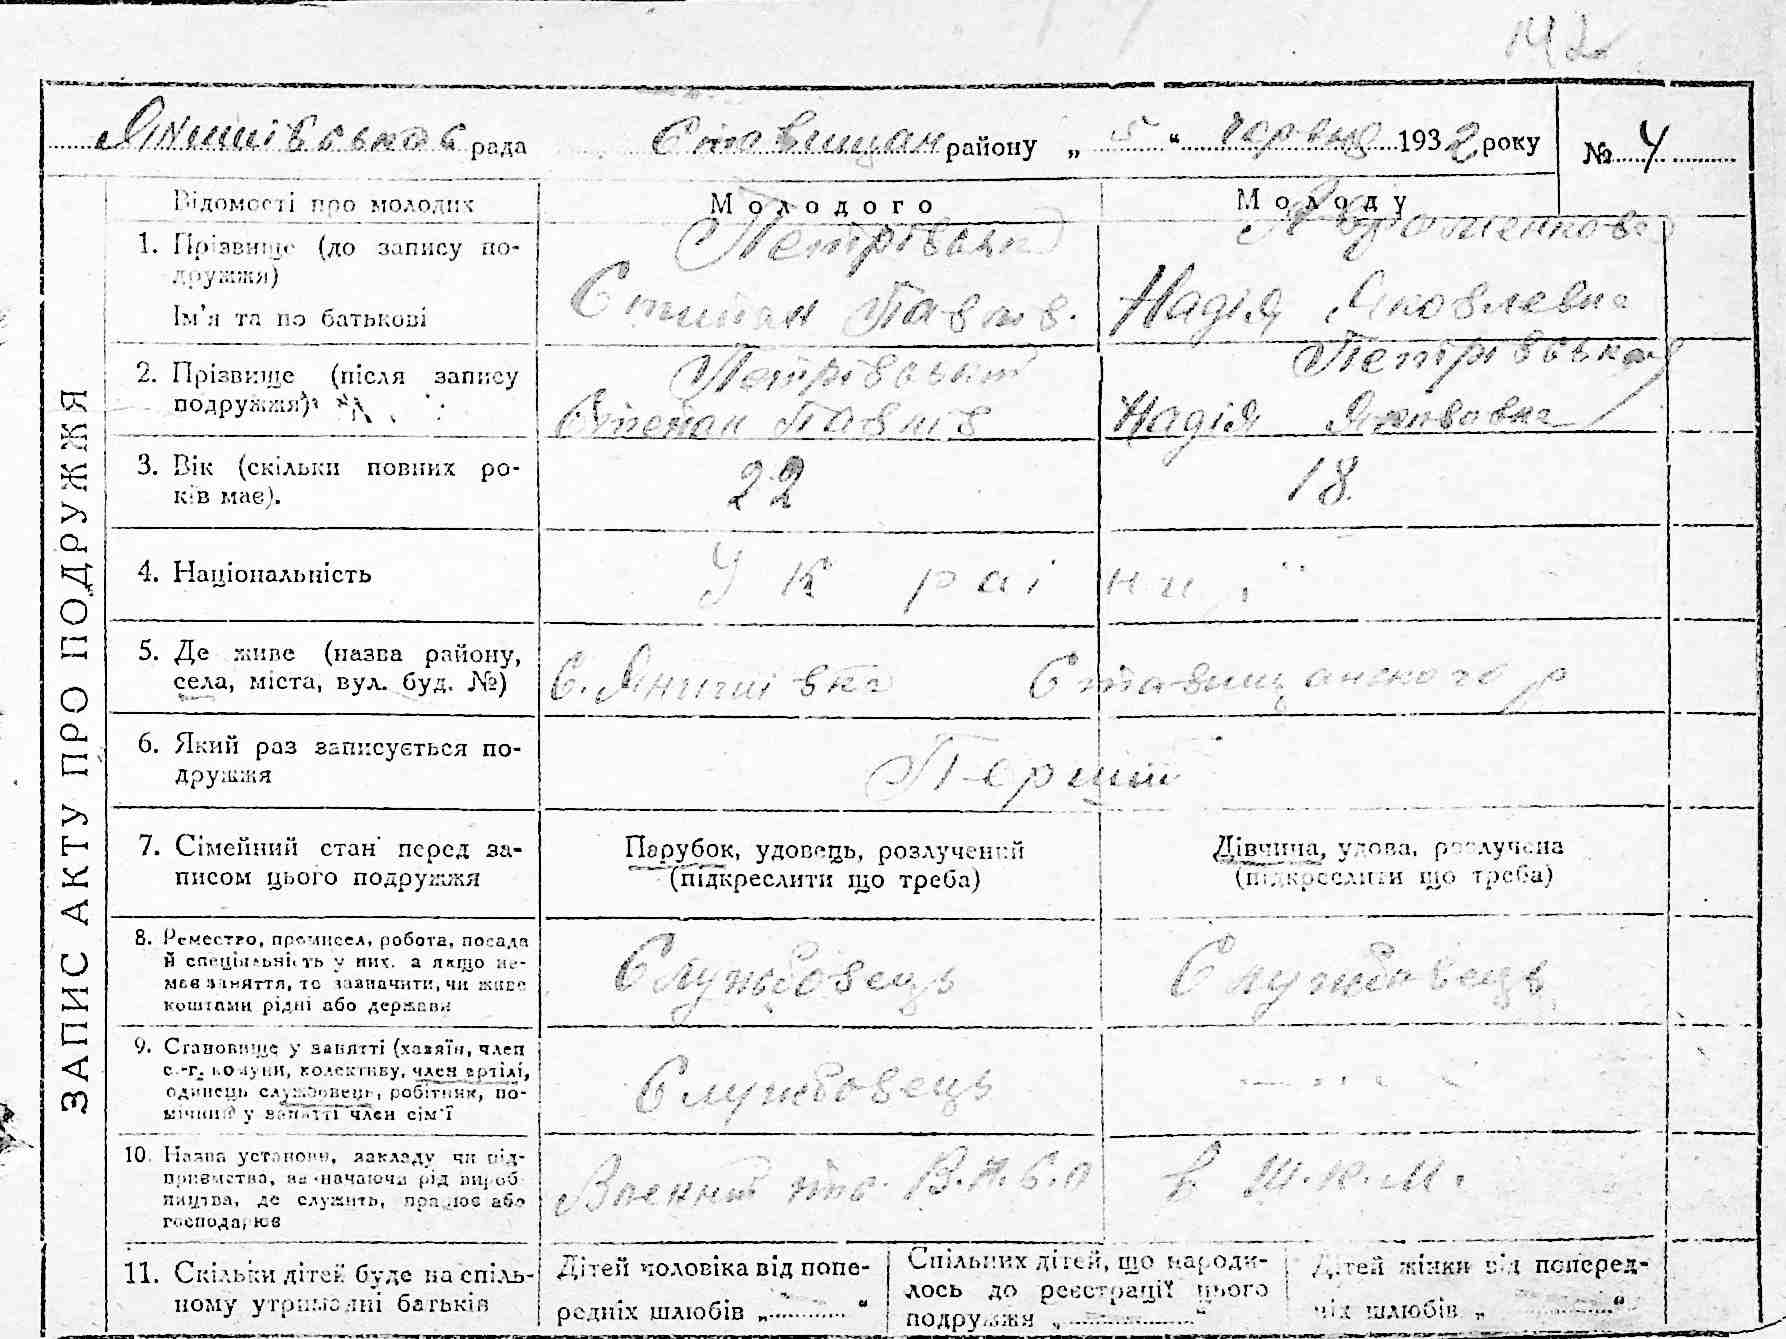 142
Янишівська рада Ставищан району „ 5 “ червня 1932 року № 4
ЗАПИС АКТУ ПРО ПОДРУЖЖЯ
Відомості про молодих
Молодого
Молоду
1. Прізвище (до запису по-
дружжя)
Ім'я та по батькові
Петрівськи
Степан Павлів.
Надія Яковлевна
2. Прізвище (після запису
подружжя)
Петрівський
Степан Павлів
Петрівська
Надія Яковівна
3. Вік (скільки повних ро-
ків має).
22
18
4. Національність
Україн
5. Де живе (назва району,
села, міста, вул. буд. №)
с. Янишівка Ставищанского р
6. Який раз записується по-
дружжя
Перший
7. Сімейний стан перед за-
писом цього подружжя
Парубок, удовець, розлучений
(підкреслити що треба)
Дівчина, удова, розлучена
(підкреслити що треба)
8. Ремество, промисел, робота, посада
й спеціяльність у них, а якщо не-
має заняття, то зазначити, чи живе
коштами рідні або держави
Службовець
Службовець
9. Становище у занятті (хазяїн, член
с.-г. комуни, колективу, член артілі,
одинець службовець, робітник, по-
мічний у занятті член сім'ї
Службовець
10. Назва установи, закладу чи під-
приємства, зазначаючи рід вироб-
ництва, де служить, працює або
господарює
в Ш.К.М.
11. Скільки дітей буде на спіль-
ному утриманні батьків
Дітей чоловіка від попе-
редніх шлюбів „ “
Спільних дітей, що народи-
лось до реєстрації цього
подружжя „ “
Дітей жінки від поперед-
ніх шлюбів „ “